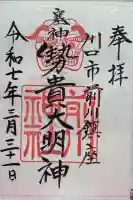 奉拝
川口市前川鎮座
鬼神
勢貴大明神
令和七年三月三十一日